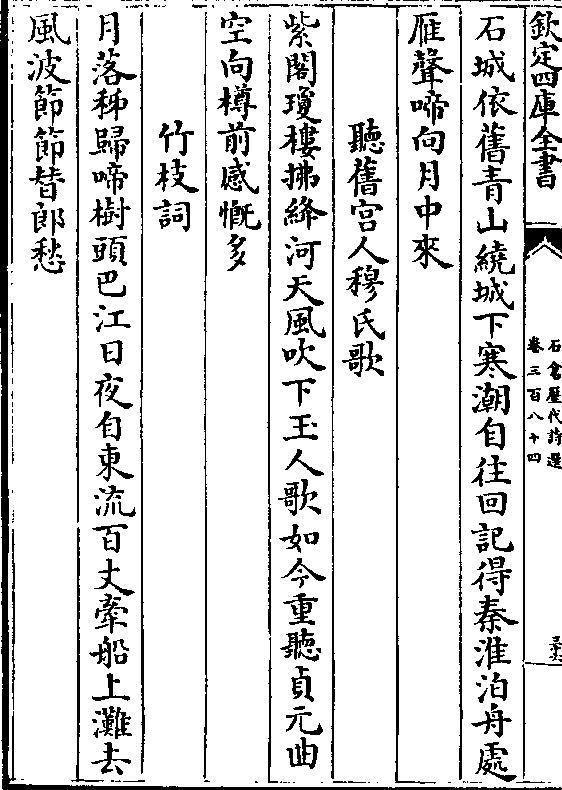 欽定四庫全書
石倉歷代詩選
卷三百八十四
石城依舊青山繞城下寒潮自往回記得秦淮泊舟處
雁聲啼向月中來
聽舊宮人穆氏歌
紫閣瓊樓拂絳河天風吹下玉人歌如今重聽貞元曲
空向樽前感慨多
竹枝詞
月落秭歸啼樹頭巴江日夜自東流百丈牽船上灘去
風波節節替郎愁